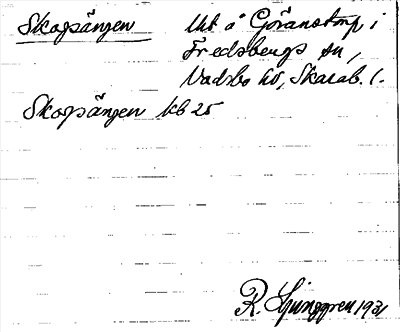 Skogsängen Utt å Göranstorp i
Fredsbergs sn,
Vadsbo hd, Skarab. l.
Skogsängen kb 25
R. Ljunggren 1931